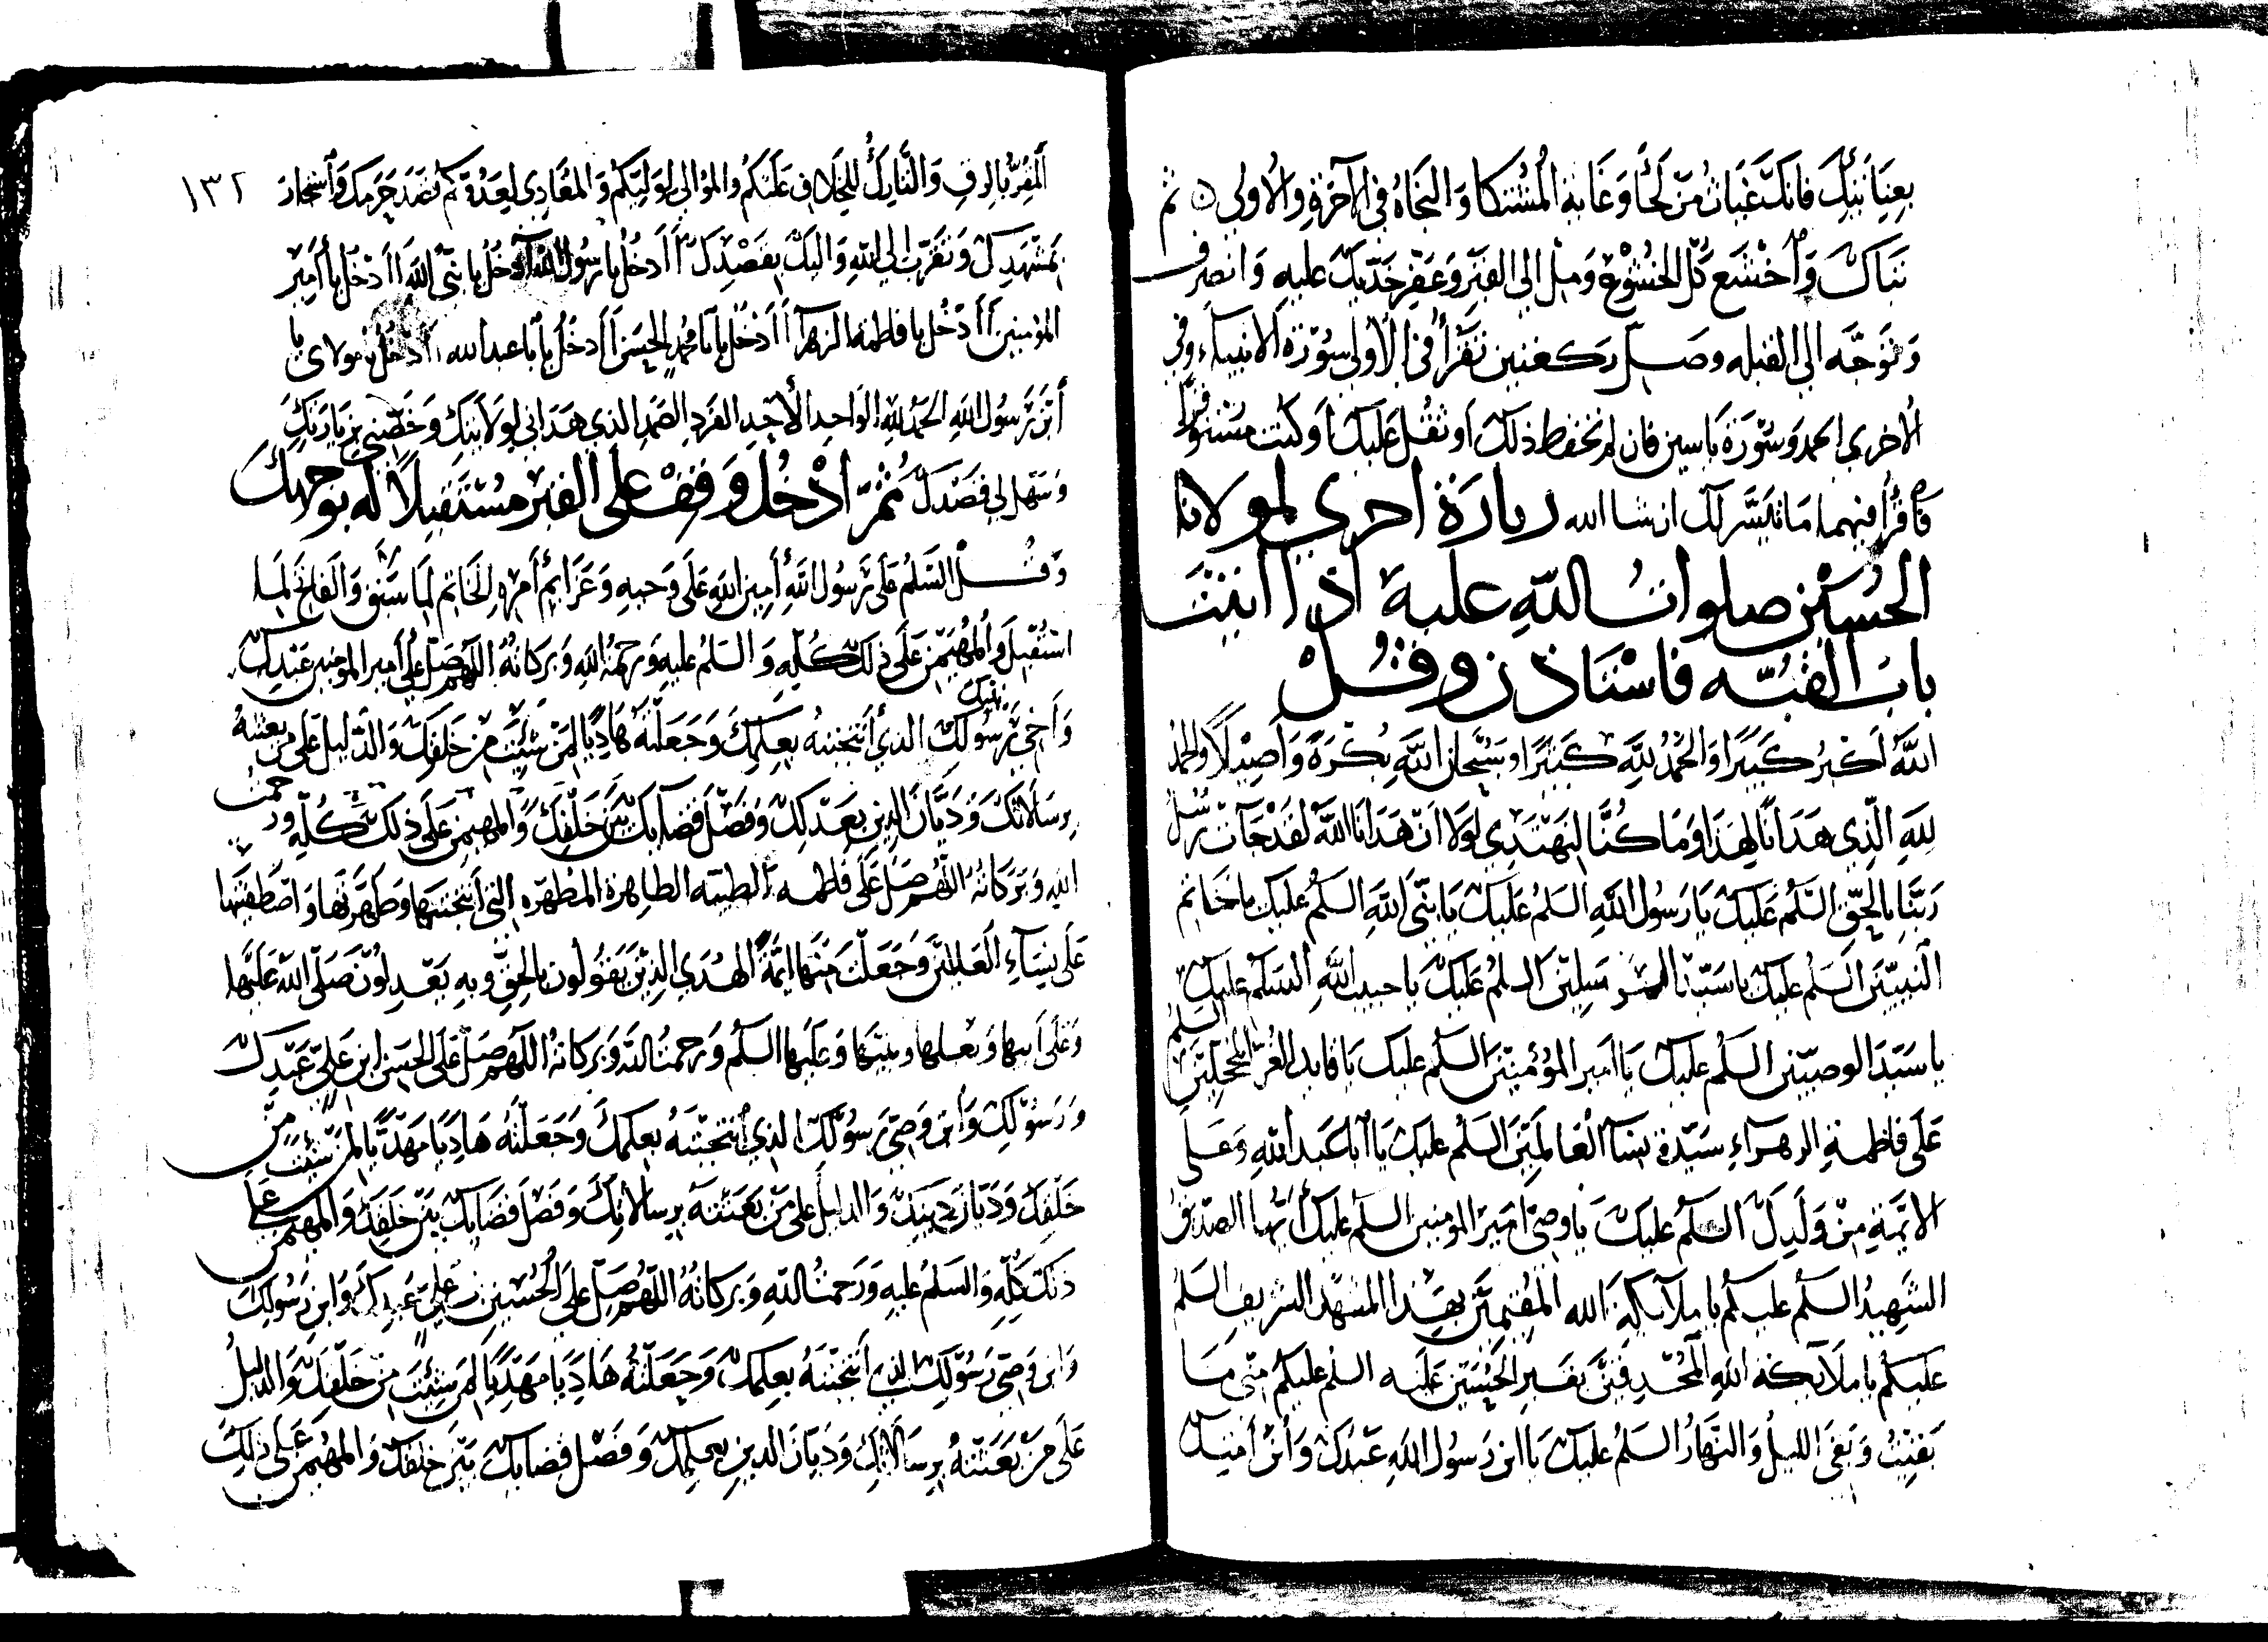 بعنايتك فانك غياث من لجأ وغاية المشتكا والنجاة في الآخرة والاولى ثم
تباك واخشع كل الخشوع ومل الى القبر وعفر خديك عليه وانصرف
وتوجه الى القبله وصل ركعتين تقرأ في الأولى سورة الانبياء وفي
الاخرى الحمد وسورة ياسين فان لم تحفظ ذلك او ثقل عليك او كنت مستوفزا
فاقرأ فيهما ما تيسر لك انشا الله زيارة اخرى لمولانا
الحسين صلوات الله عليه اذا اتيت
باب القبه فاستاذن وقل
الله اكبر كبيرا والحمد لله كثيرا وسبحان الله بكرة واصيلا والحمد
لله الذي هدانا لهذا وما كنا لنهتدي لولا ان هدانا الله لقد جات رسل
ربنا بالحق السلم عليك يا رسول الله السلم عليك يا نبي الله السلم عليك يا خاتم
النبيين السلم عليك يا سيد المرسلين السلم عليك يا حبيب الله السلم عليك
يا سيد الوصيين السلم عليك يا امير المؤمنين السلم عليك يا قايد الغر المحجلين السلم
على فاطمة الزهراء سيدة نسآ العالمين السلم عليك يا ابا عبد الله وعلى
الائمة من ولدك السلم عليك يا وصي امير المومنين السلم عليك أيها الصديق
الشهيد السلم عليكم يا ملآيكة الله المقيمين بهذا المشهد الشريف السلم
عليكم يا ملايكة الله المحدقين بقبر الحسين عليه السلم عليكم مني ما
بقيت وبقي الليل والنهار السلم عليك يا ابن رسول الله عبدك وابن أمتك
المقر بالرق والتارك للخلاف عليكم والموالي لوليكم والمعادي لعدوكم قصد حرمك واستجار ١٣٢
بمشهدك وتقرب الى الله واليك بقصدك أادخل يا رسول الله أادخل يا نبي الله أادخل يا أمير
المؤمنين أادخل يا فاطمة الزهرآ أادخل يا أبا محمد الحسن أادخل يا أبا عبد الله أادخل يا مولاى يا
أبن رسول الله الحمد لله الواحد الأحد الفرد الصمد الذي هداني لولايتك وخصني بزيارتك
وسهل لي قصدك ثم ادخل وقف على القبر مستقبلا له بوجهك
وقل السلم على رسول الله أمين الله على وحيه وعزايم أمره الخاتم لما سبق والفاتح لما
استقبل والمهيمن على ذلك كله والسلم عليه ورحمة الله وبركاته اللهم صل على أمير المومنين عبدك
وأخي رسولك الذي أنتجبته بعلمك وجعلته هاديا لمن شئت من خلقك والدليل على من بعثته
برسالاتك وديان الدين بعدلك وفصل قضايك بين خلقك والمهيمن على ذلك كله ورحمت
الله وبركاته اللهم صل على فاطمه الطيبه الطاهرة المطهره التي أنتجبتها وطهرتها واصطفيتها
على نسآء العالمين وجعلت منها ائمة الهدي الذين يقولون بالحق وبه يعدلون صلى الله عليها
وعلى أبيها وبعلها وبنيها وعليها السلم ورحمت الله وبركاته اللهم صل على الحسن ابن علي عبدك
ورسولك وأبن وصي رسولك الذي أنتجبته بعلمك وجعلته هاديا مهديا لمن شئت من
خلقك وديان دينك والدليل على من بعثته برسالاتك وفصل قضايك بين خلقك والمهيمن على
ذلك كله والسلم عليه ورحمت الله وبركاته اللهم صل على الحسين بن علي عبدك وابن رسولك
وابن وصي رسولك الذي أنتجبته بعلمك وجعلته هاديا مهديا لمن شئت من خلقك والدليل
على من بعثته برسالاتك وديان الدين بعلمك وفصل قضايك بين خلقك والمهيمن على ذلك